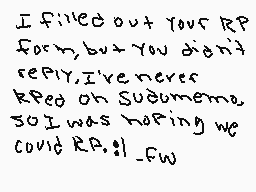 I filled out your RP
form, but you didn't
reply. I've never
RPed on Sudomemo
so I was hoping we
could RP. :l -FW